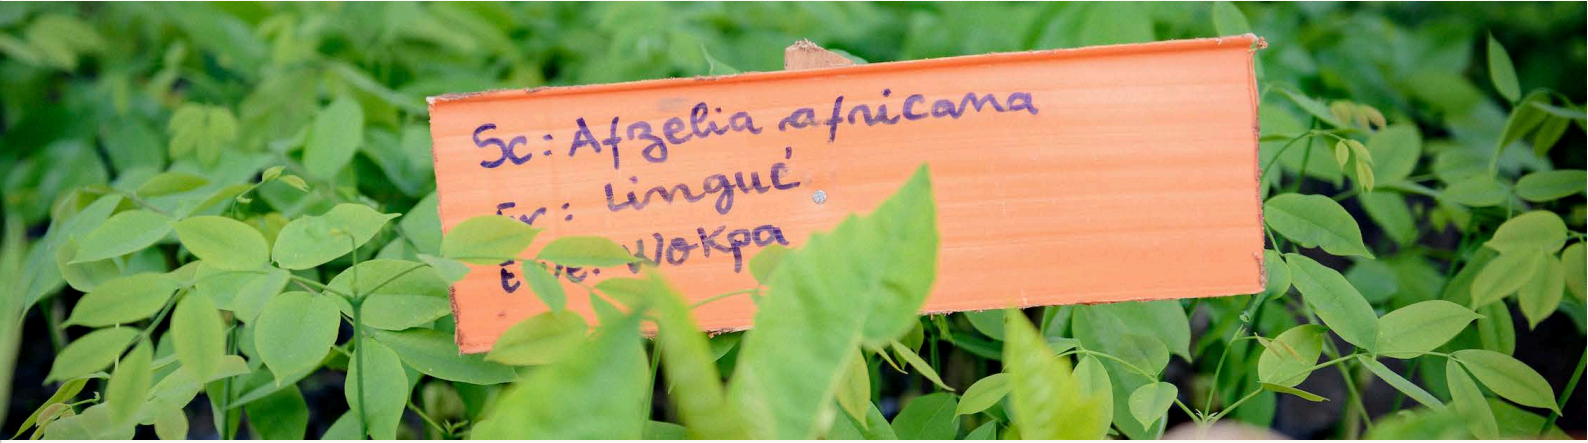 Sc: Afzelia africana
Fr: Lingué
Ewe: Wokpa